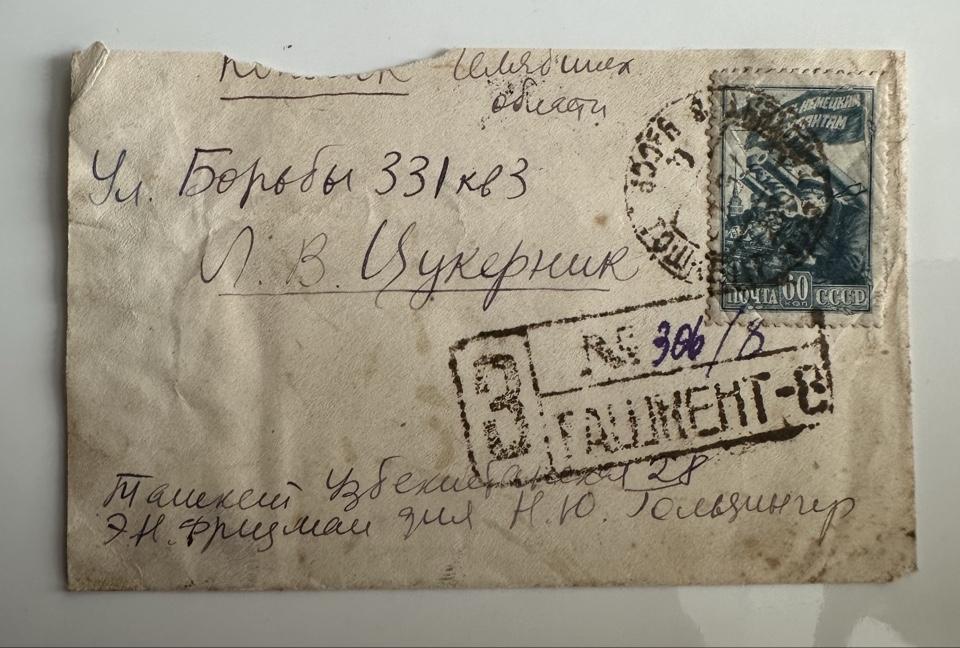 Челябинск
области
НЕМЕЦКИМ
Ул. Борьбы 331 кв 3
Л. В. Цукерник
ПОЧТА 60 КОП СССР
З № 306/8
ТАШКЕНТ-8
Ташкент Узбекистанская 28
Э.Н. Фридман для Н.Ю. Гольдингер